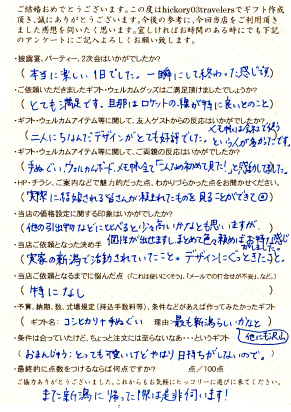 ご結婚おめでとうございます。この度はhickory03travelersでギフト作成
頂き、誠にありがとうございます。今後の参考に、今回当店をご利用頂き
ました感想を伺いたく思います。宜しければお時間のある時にでも下記
のアンケートにご記入よろしくお願い致します。
・披露宴、パーティー、2次会はいかがでしたか?
(本当に楽しい1日でした。一瞬にして終わった感じです)
・ご依頼いただきましたギフト・ウェルカムグッズはご満足頂けましたでしょうか?
(とても満足です。旦那はロケットの様が特に良いとのこと)
・ギフト・ウェルカムアイテム等に関して、友人ゲストからの反応はいかがでしたか?
メモ帳は余れば使う
という人が多かったです。
(二人にちなんだデザインがとても好評でした。)
・ギフト・ウェルカムアイテム等に関して、ご両親の反応はいかがでしたか?
(手ぬぐい、ウェルカムボード、メモ帳全て「こんなの初めて見た!」と感動してました。)
・HP・チラシ、ご案内などで魅力的だった点、わかりづらかった点をお聞かせください。
(実際に結婚される皆さんが頼まれたものを見ることができて◎)
・当店の価格設定に関する印象はいかがでしたか?
(他の引出物などに比べると少々高いかなとも思いますが、
個性が出せますしまとめて色々頼めてお得な感じ
がしました。)
・当店ご依頼となった決め手
(実家の新潟で活動されていたこと。デザインにぐっときたこと。)
・当店ご依頼となるまでに悩んだ点 (「これは使いにくそう」、「メールでの打合せが不安」、など。)
(特になし)
・予算、納期、数、式場規定(持込手数料等)、条件などがあえば作ってみたかったギフト
(ギフト名: コシヒカリ手ぬぐい 理由: 最も新潟らしいかなと)
他にも沢山
・条件は合っていたけど、ちょっと注文には至らないなあ・・・というギフト
(おまんじゅう:とっても可愛いけどやはり日持ちがしないので。)
・最終的に点数をつけるならば何点ですか? 点/100点
ご協力ありがとうございました。これからもお気軽にヒッコリーに遊びに来てください。
また新潟に帰った際は是非伺います!